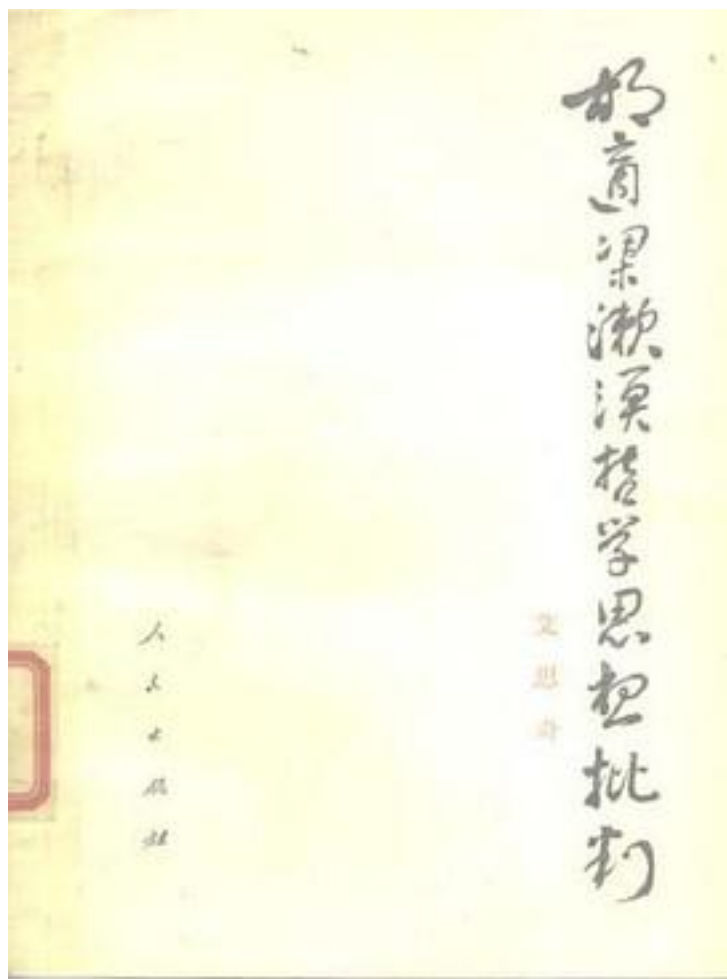 胡適梁漱溟哲学思想批判
艾思奇
人民出版社